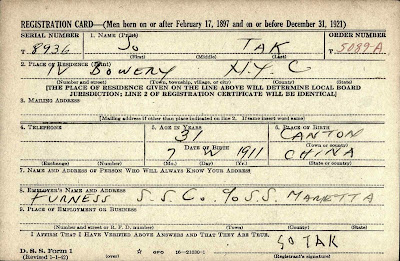 REGISTRATION CARD—(Men born on or after February 17, 1897 and on or before December 31, 1921)
SERIAL NUMBER 1. NAME (Print) ORDER NUMBER
T 8936 SO TAK 5089-A
(First) (Middle) (Last)
2. PLACE OF RESIDENCE (Print)
IV BOWERY N.Y.C
(Number and street) (Town, township, village, or city) (County) (State)
[THE PLACE OF RESIDENCE GIVEN ON THE LINE ABOVE WILL DETERMINE LOCAL BOARD
JURISDICTION; LINE 2 OF REGISTRATION CERTIFICATE WILL BE IDENTICAL]
3. MAILING ADDRESS
[Mailing address if other than place indicated on line 2. If same insert word same]
4. TELEPHONE 5. AGE IN YEARS 6. PLACE OF BIRTH
31 CANTON
DATE OF BIRTH (Town or county)
7 1911 CHINA
(Exchange) (Number) (Mo.) (Day) (Yr.) (State or country)
7. NAME AND ADDRESS OF PERSON WHO WILL ALWAYS KNOW YOUR ADDRESS
8. EMPLOYER'S NAME AND ADDRESS
FURNESS S.S. Co. % S.S. MARETTA
9. PLACE OF EMPLOYMENT OR BUSINESS
(Number and street or R. F. D. number) (Town) (County) (State)
I AFFIRM THAT I HAVE VERIFIED ABOVE ANSWERS AND THAT THEY ARE TRUE.
D. S. S. Form 1 GPO 16—21630-1 SO TAK
(Revised 1-1-42) (over) (Registrant's signature)